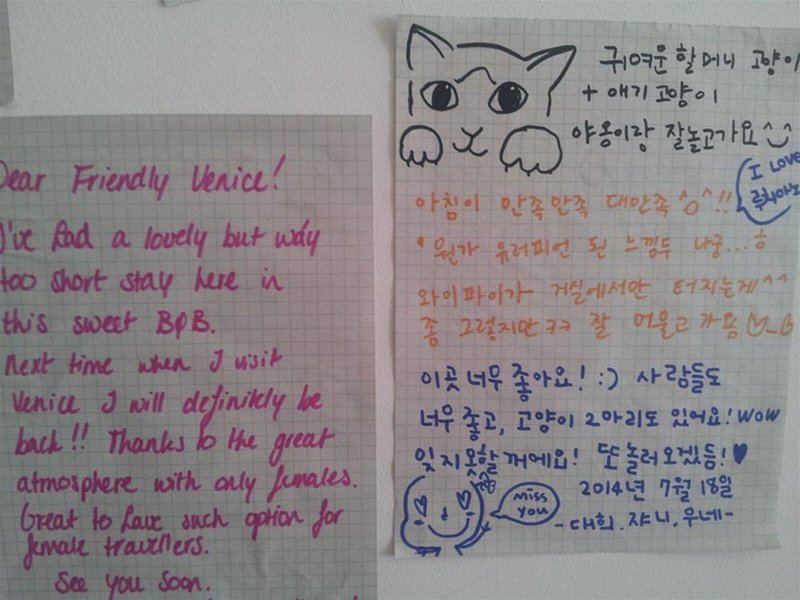 Dear Friendly Venice!
I've had a lovely but way
too short stay here in
this sweet B&B.
Next time when I visit
Venice I will definitely be
back!! Thanks to the great
atmosphere with only females.
Great to have such option for
female travellers.
See you soon.
귀여운 할머니 고양이
+ 애기 고양이
야옹이랑 잘놀고가요^_^
I LOVE
루치아노
아침이 만족만족 대만족 ^o^!!
*뭔가 유러피언 된 느낌두 나궁...ㅎ
와이파이가 거실에서만 터지는게^^
좀 그렇지만ㅋㅋ 잘 머물고가용
이곳 너무 좋아요! :) 사람들도
너무 좋고, 고양이 2마리도 있어요! WOW
잊지 못할꺼에요! 또 놀러오겠듬! ♥
miss you
2014년 7월 18일
-대희.쟈니.우네-